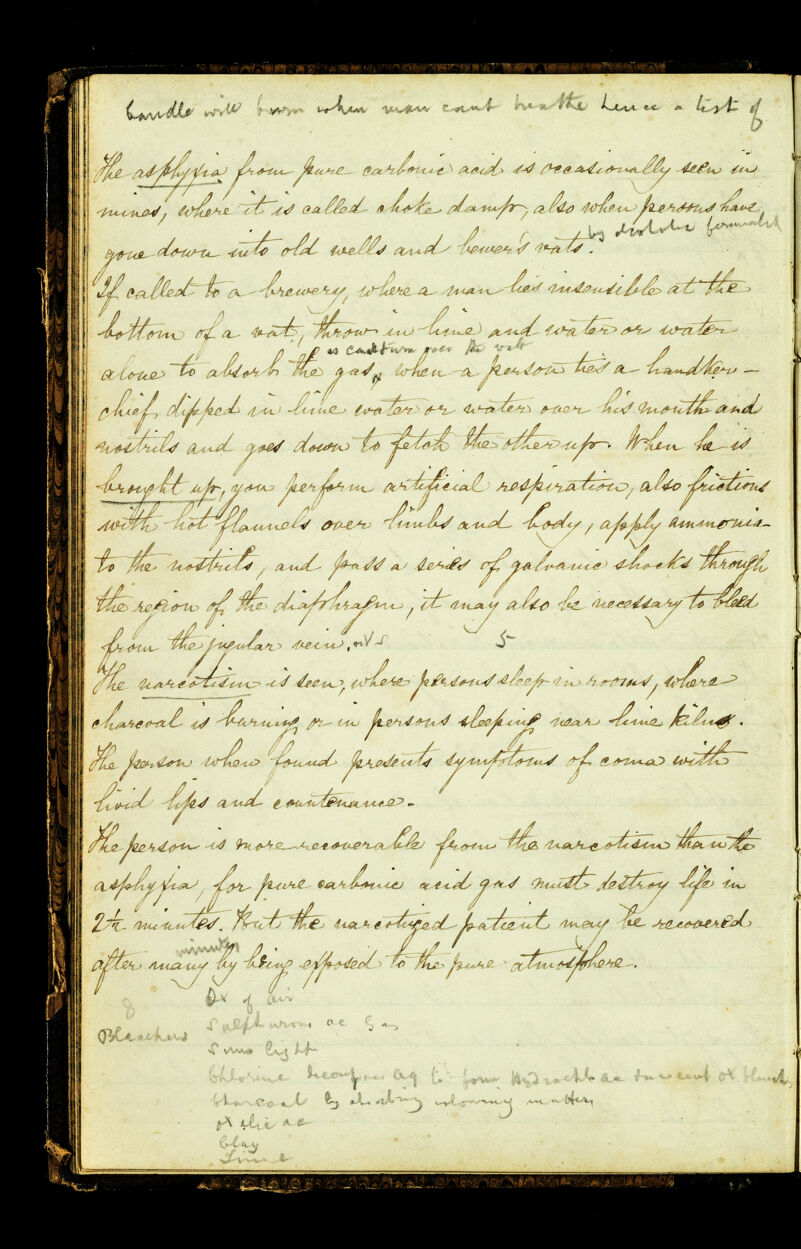 Candle will burn when man cant breathe hence a test of
The asphyxia from pure carbonic acid is occasionally seen in
mines, where it is called choke damp, also when persons have
gone down into old wells and bewer's vats. by
If called to a brewery, where a man lies insensible at the
bottom of a vat, throw in lime and water or water
alone to absorb the gas, when a person ties a handker-
chief dipped in lime water or water over his mouth and
nostrils and goes down to fetch the other up. When he is
brought up, you perform artificial respiration, also frictions
with hot flannels over limbs and body, apply ammonia
to the nostrils, and pass a series of galvanic shocks through
the region of the diaphragm, it may also be necessary to bleed
from the jugular vein. 5
The narcotism is seen, where persons sleep in rooms, where
charcoal is burning or in persons sleeping near lime kilns.
The person when found presents symptoms of coma with
livid lips and countenance.
The person is more recoverable from the narcotism than the
asphyxia, for pure carbonic acid gas must destroy life in
2½ minutes. But the narcotized patient may be recovered
minutes
after many by being exposed to the pure atmosphere.
8 Ox of air
Bleachers Sulphurous ac Gas
Suns light
Chlorine decomposes aq to form Hydrochl ac ox
Charcoal by absorbing colouring matters
oxalic ac
Clay
Lime